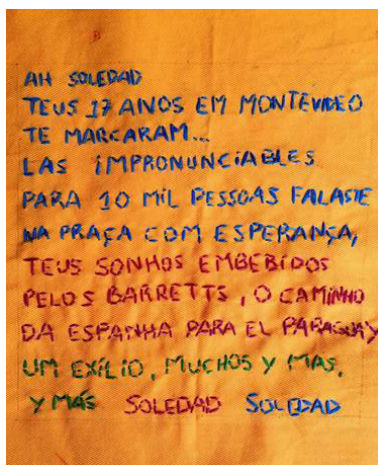 AH SOLEDAD
TEUS 17 ANOS EM MONTEVIDEO
TE MARCARAM...
LAS IMPRONUNCIABLES
PARA 10 MIL PESSOAS FALASTE
NA PRAÇA COM ESPERANÇA,
TEUS SONHOS EMBEBIDOS
PELOS BARRETTS, O CAMINHO
DA ESPANHA PARA EL PARAGUAY
UM EXÍLIO, MUCHOS Y MAS,
Y MÁS SOLEDAD SOLEDAD